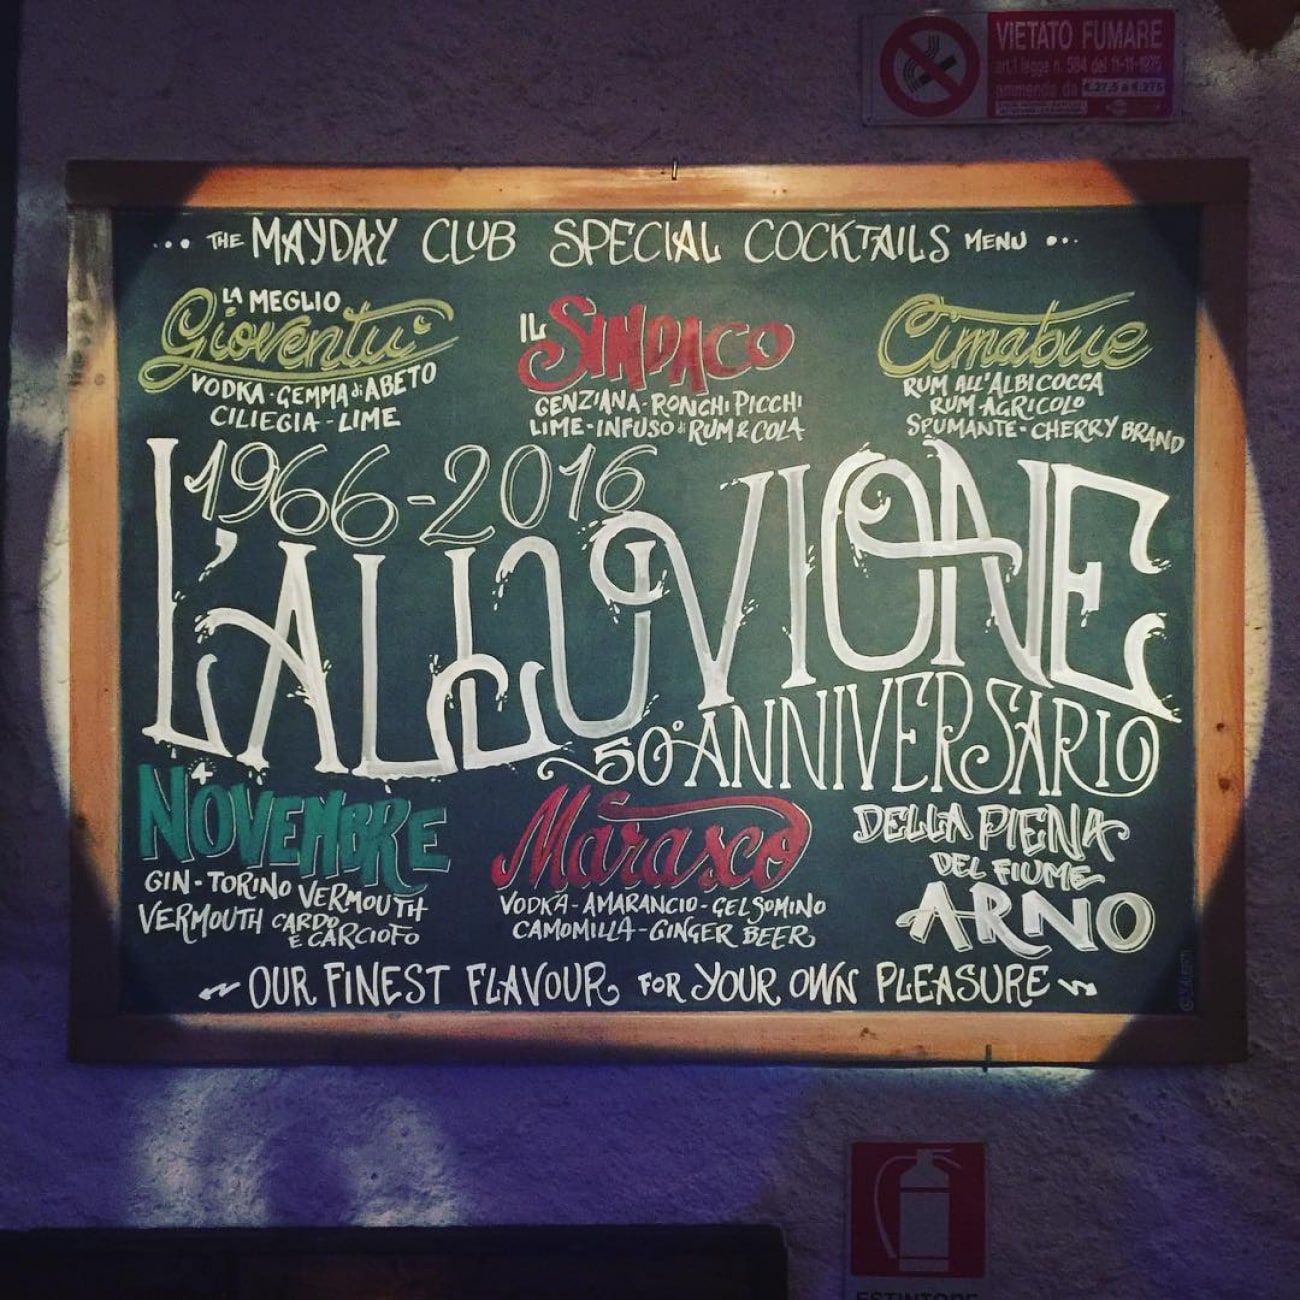 VIETATO FUMARE
art.1 legge n. 584 del 11-11-1975
ammenda da €.27,5 a €.275
... THE MAYDAY CLUB SPECIAL COCKTAILS MENU ...
LA MEGLIO
Gioventù
VODKA - GEMMA di ABETO
CILIEGIA - LIME
IL SINDACO
GENZIANA - RONCHI PICCHI
LIME - INFUSO di RUM & COLA
Cimabue
RUM ALL'ALBICOCCA
RUM AGRICOLO
SPUMANTE - CHERRY BRAND
1966-2016
L'ALLUVIONE
50° ANNIVERSARIO
DELLA PIENA
DEL FIUME
ARNO
4 NOVEMBRE
GIN - TORINO VERMOUTH
VERMOUTH CARDO
E CARCIOFO
Marasco
VODKA - AMARANCIO - GELSOMINO
CAMOMILLA - GINGER BEER
OUR FINEST FLAVOUR FOR YOUR OWN PLEASURE
ESTINTORE